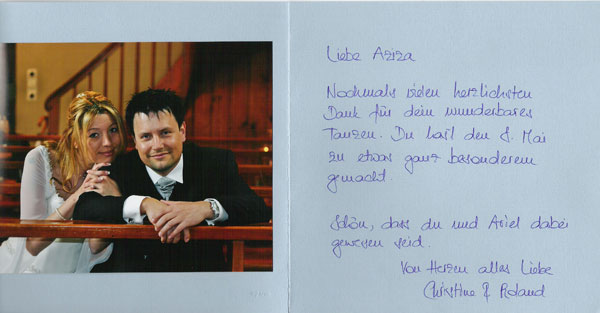 Liebe Aziza
Nochmals vielen herzlichsten
Dank für dein wunderbares
Tanzen. Du hast den 8. Mai
zu etwas ganz besonderem
gemacht.
Schön, dass du und Ariel dabei
gewesen seid.
Von Herzen alles Liebe
Christine & Roland